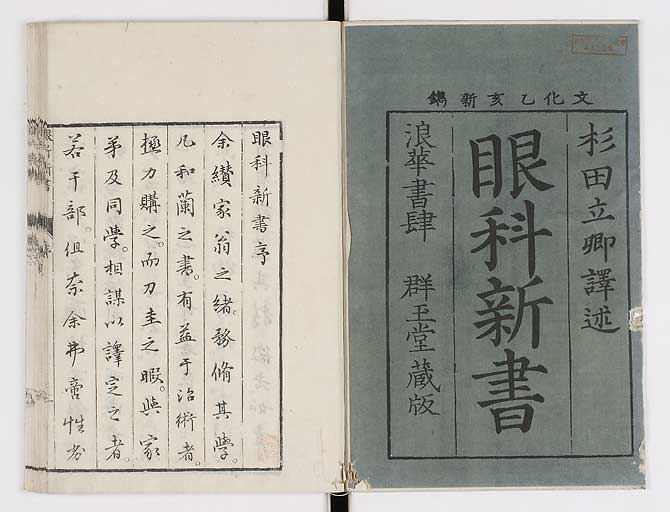 文化乙亥新鐫
杉田立卿譯述
眼科新書
浪華書肆 群玉堂藏版
眼科新書序
余纉家翁之緒。務脩其學。
凡和蘭之書。有益于治術者。
極力購之。而刀圭之暇。與家
弟及同學。相謀以譯定之者。
若干部。但奈余弗啻性劣
眼科新書
序